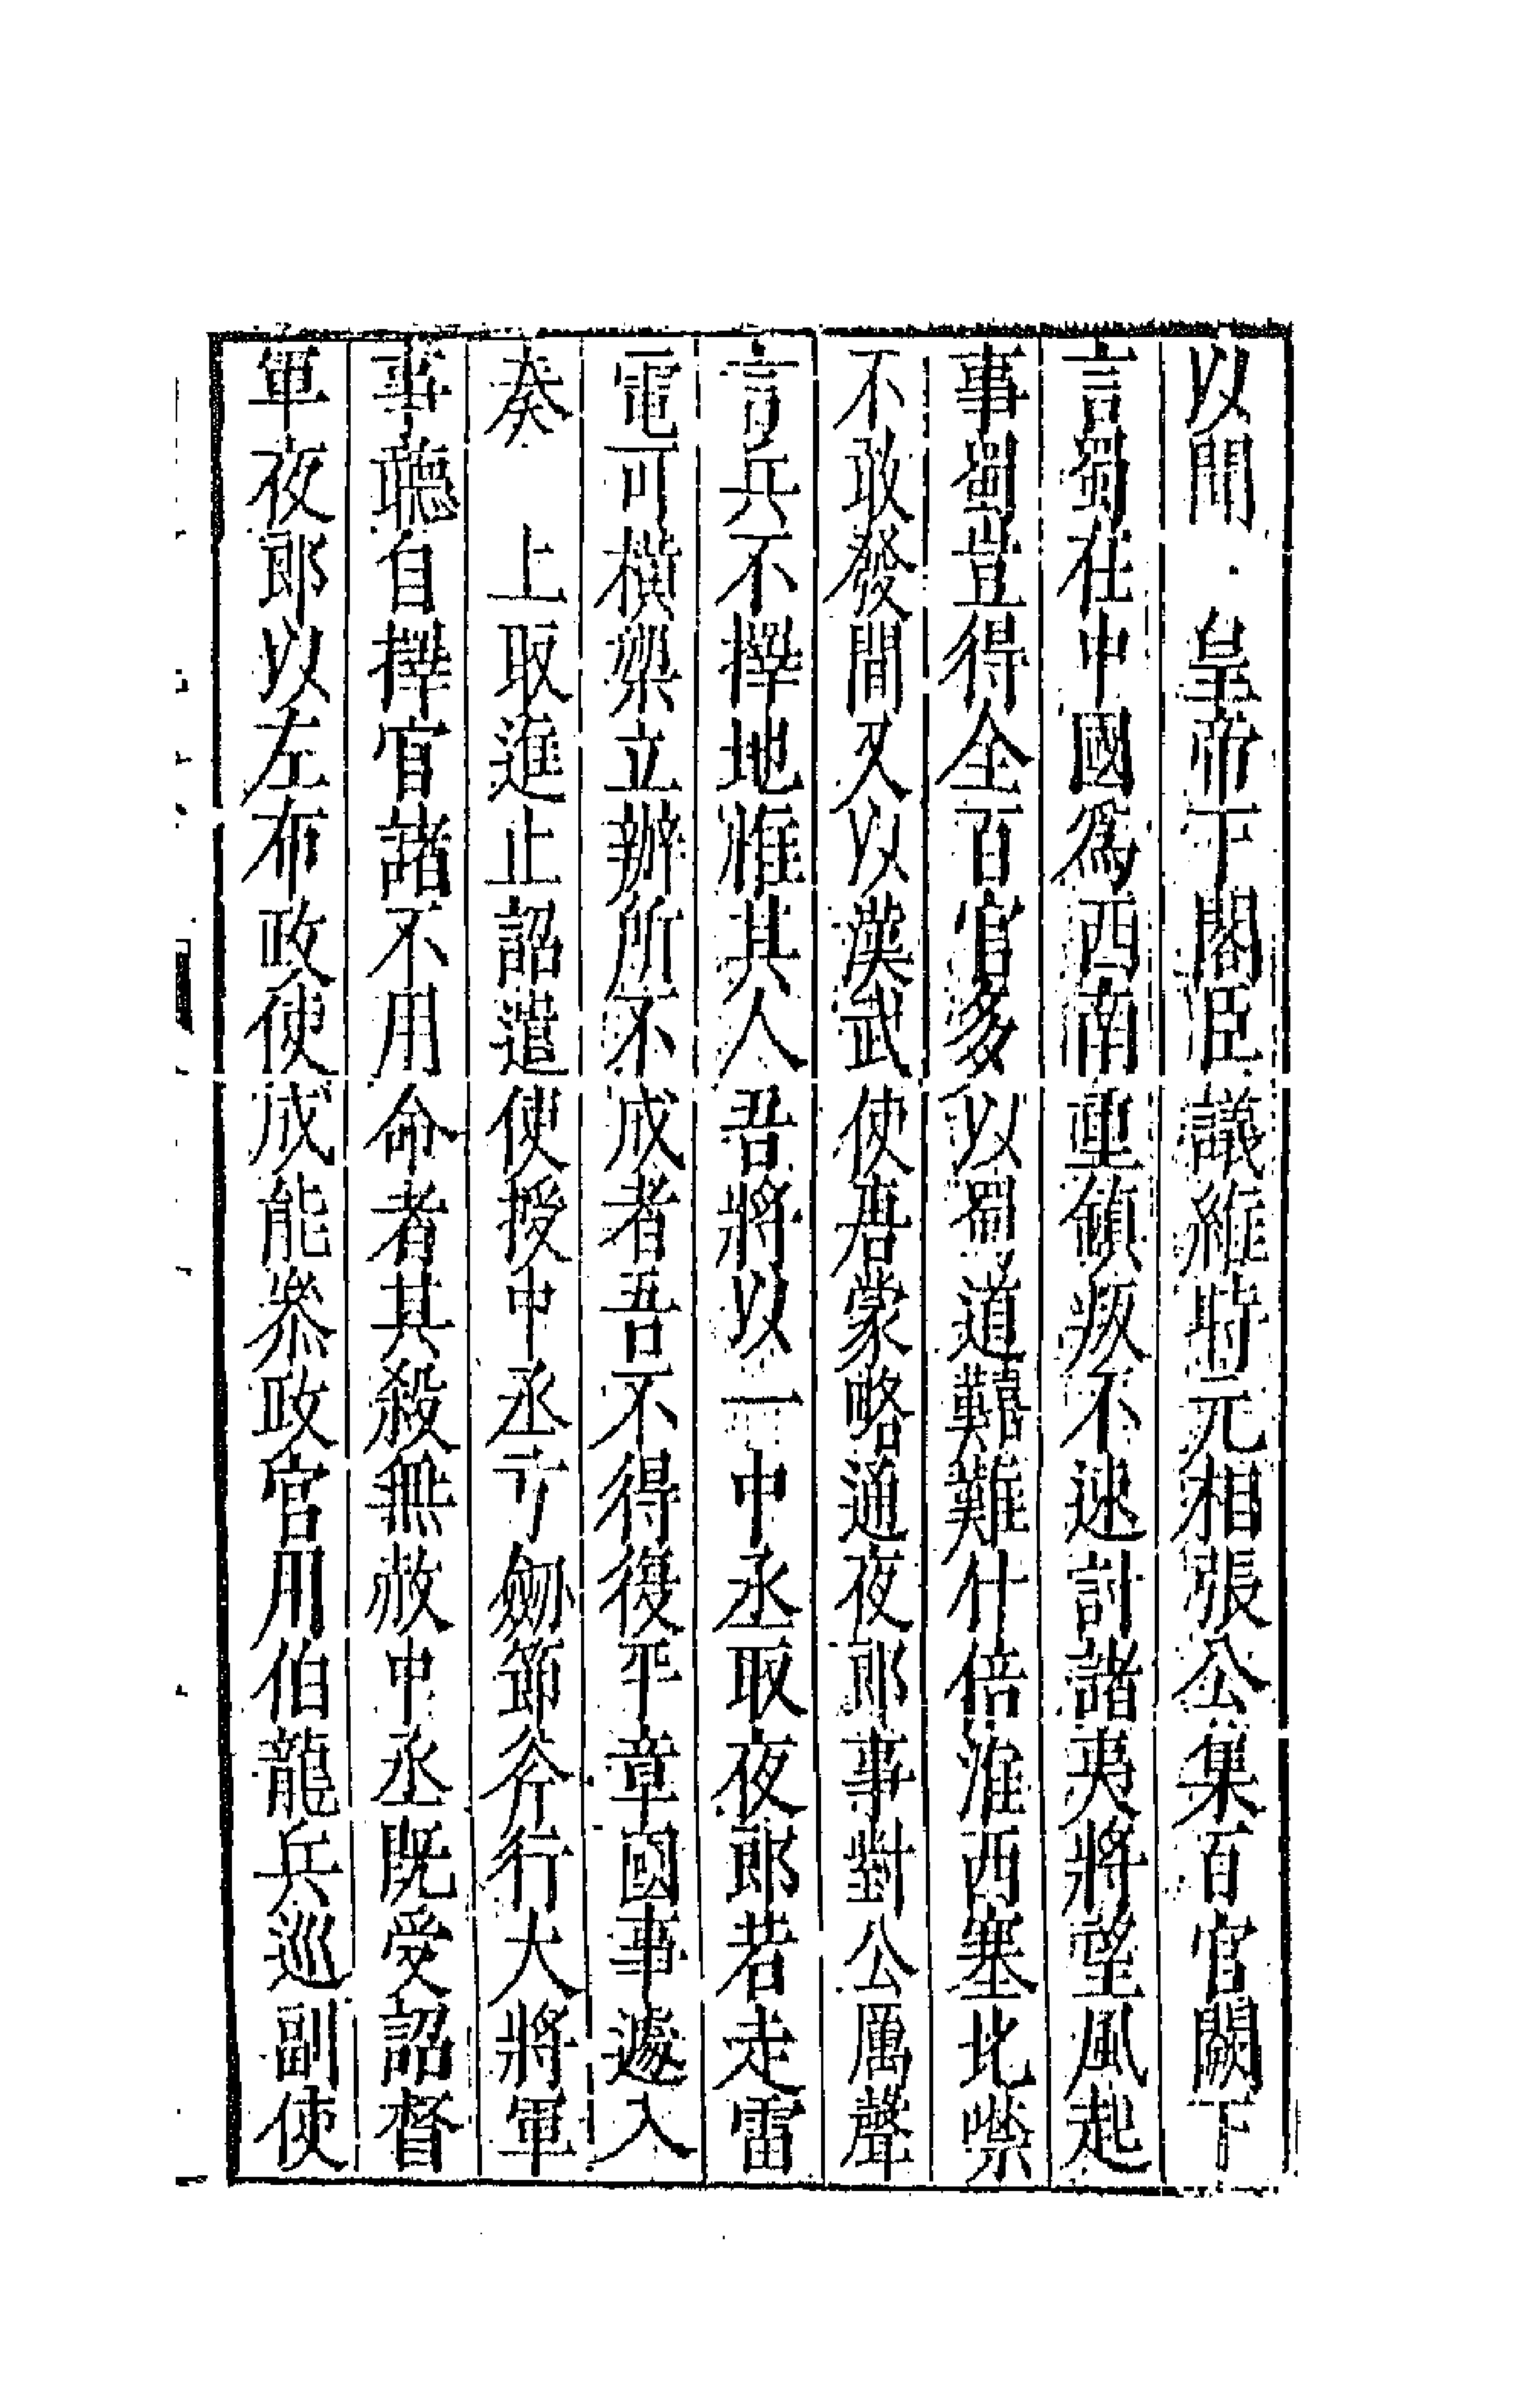 以聞　皇帝下閣臣議維時元相張公集百官闕下
言蜀在中國爲西南重鎮叛不速討諸夷將望風起
事蜀豈得全百官多以蜀道艱難什倍淮西塞比噤
不敢發間又以漢武使唐蒙略通夜郎事對公厲聲
言兵不擇地惟其人吾將以一中丞取夜郎若走雷
電可橫梁立辦所不成者吾不得復平章國事遽入
奏　上取進止詔遣使授中丞亐劒節斧行大將軍
事聽自擇官諸不用命者其殺無赦中丞既受詔督
軍夜郎以左布政使成能叅政官用伯龍兵巡副使